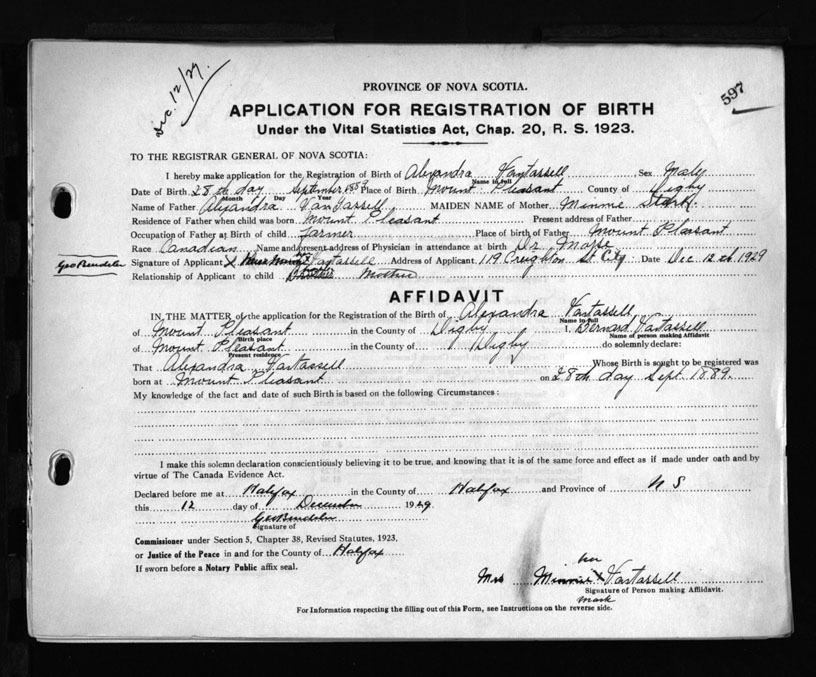 Dec. 12/29.
597
PROVINCE OF NOVA SCOTIA.
APPLICATION FOR REGISTRATION OF BIRTH
Under the Vital Statistics Act, Chap. 20, R. S. 1923.
TO THE REGISTRAR GENERAL OF NOVA SCOTIA:
I hereby make application for the Registration of Birth of Alexandra Vantassell Sex Male
Name in full
Date of Birth 28th day September 1889 Place of Birth Mount Pleasant County of Digby
Month Day Year
Name of Father Alexandra VanTassell MAIDEN NAME of Mother Minnie
Residence of Father when child was born Mount Pleasant Present address of Father
Occupation of Father at Birth of child farmer Place of birth of Father Mount Pleasant
Race Canadian Name and present address of Physician in attendance at birth Dr Morse
Signature of Applicant X Vantassell Address of Applicant 119 Creighton St City Date Dec 12th 1929
Relationship of Applicant to child Mother
AFFIDAVIT
IN THE MATTER of the application for the Registration of the Birth of Alexandra Vantassell
Name in full
of Mount Pleasant in the County of Digby I, Bernard Vantassell
Birth place Name of person making Affidavit
of Mount Pleasant in the County of Digby do solemnly declare:
Present residence
That Alexandra Vantassell Whose Birth is sought to be registered was
born at Mount Pleasant on 28th day Sept. 1889.
My knowledge of the fact and date of such Birth is based on the following Circumstances:
I make this solemn declaration conscientiously believing it to be true, and knowing that it is of the same force and effect as if made under oath and by
virtue of The Canada Evidence Act.
Declared before me at Halifax in the County of Halifax and Province of N S
this 12 day of December 1929
Signature of
Commissioner under Section 5, Chapter 38, Revised Statutes, 1923.
or Justice of the Peace in and for the County of Halifax
If sworn before a Notary Public affix seal.
her
Mrs Minnie X Vantassell
Signature of Person making Affidavit.
mark
For Information respecting the filling out of this Form, see Instructions on the reverse side.